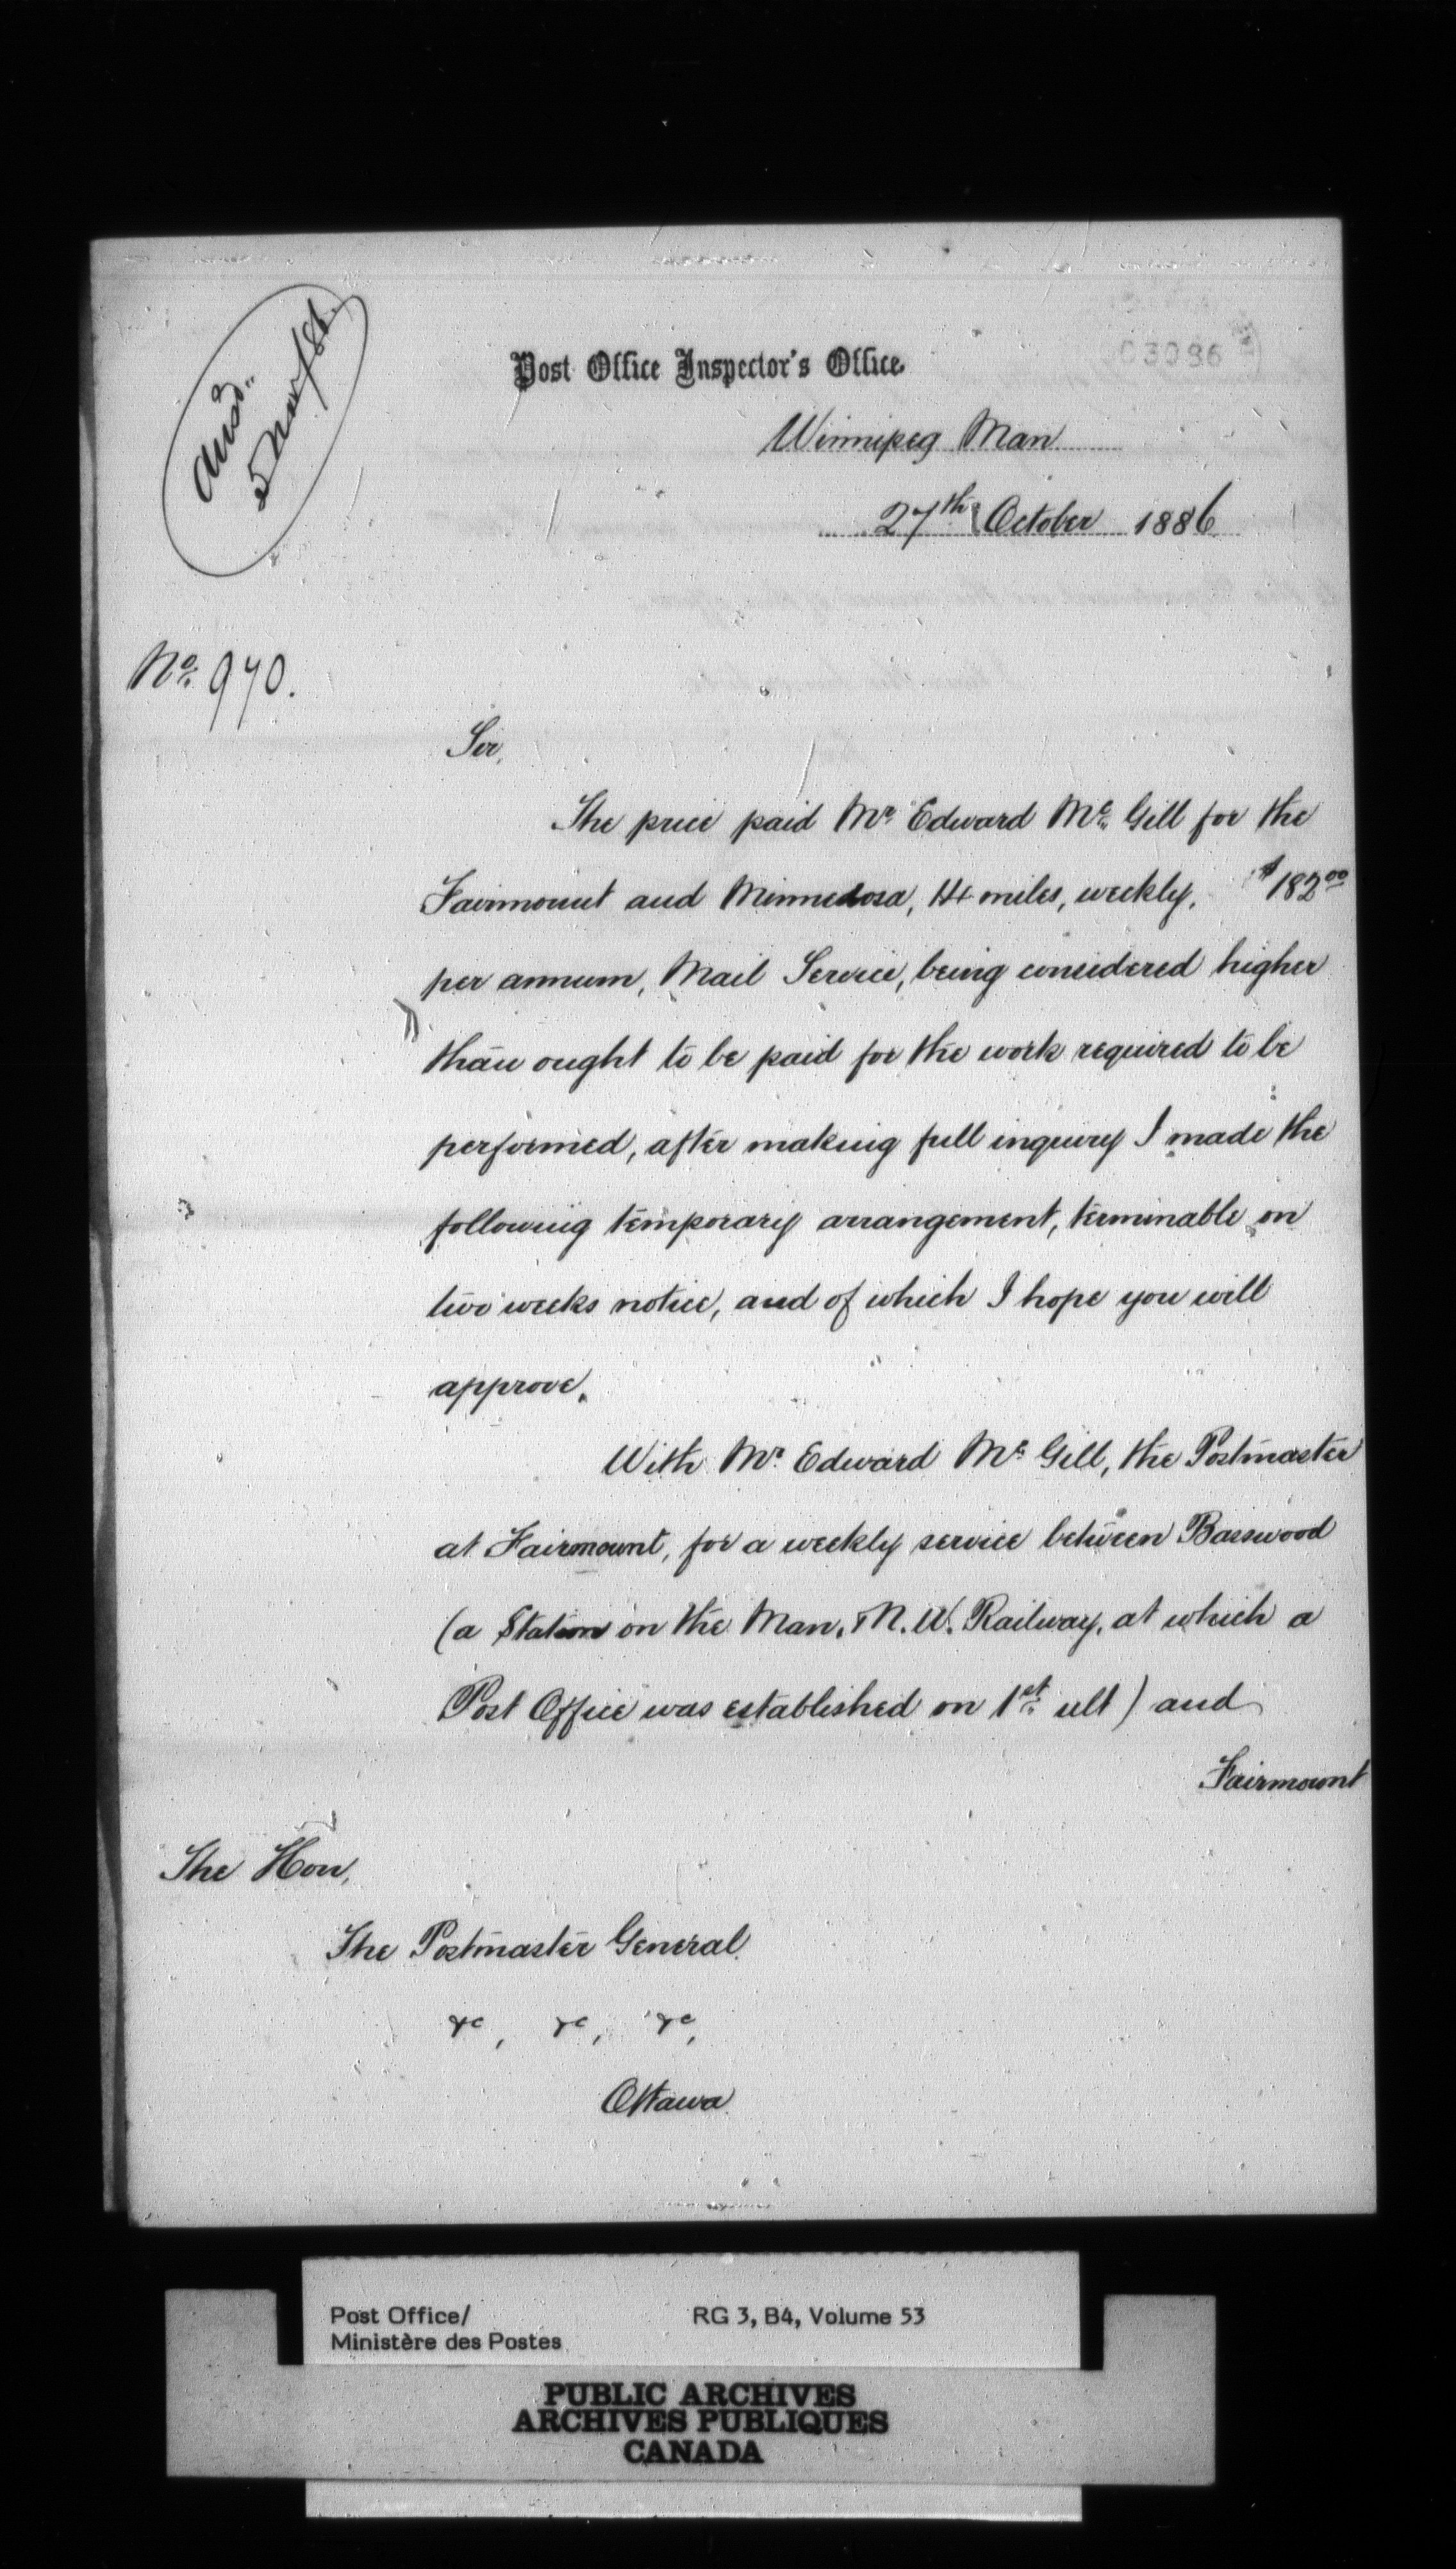 Ansd.
5 Nov/86.
03096
Post Office Inspector's Office.
Winnipeg Man
27th October 1886
No. 970.
Sir,
The price paid Mr Edward Mc Gill for the
Fairmount and Minnedosa, 14 miles, weekly, $182.00
per annum, Mail Service, being considered higher
than ought to be paid for the work required to be
performed, after making full inquiry I made the
following temporary arrangement, terminable on
two weeks notice, and of which I hope you will
approve.
With Mr Edward Mc Gill, the Postmaster
at Fairmount, for a weekly service between Basswood
(a Station on the Man. & N. W. Railway, at which a
Post Office was established on 1st ult) and
Fairmount
The Hon,
The Postmaster General
&c, &c, &c,
Ottawa
Post Office/ RG 3, B4, Volume 53
Ministère des Postes
PUBLIC ARCHIVES
ARCHIVES PUBLIQUES
CANADA